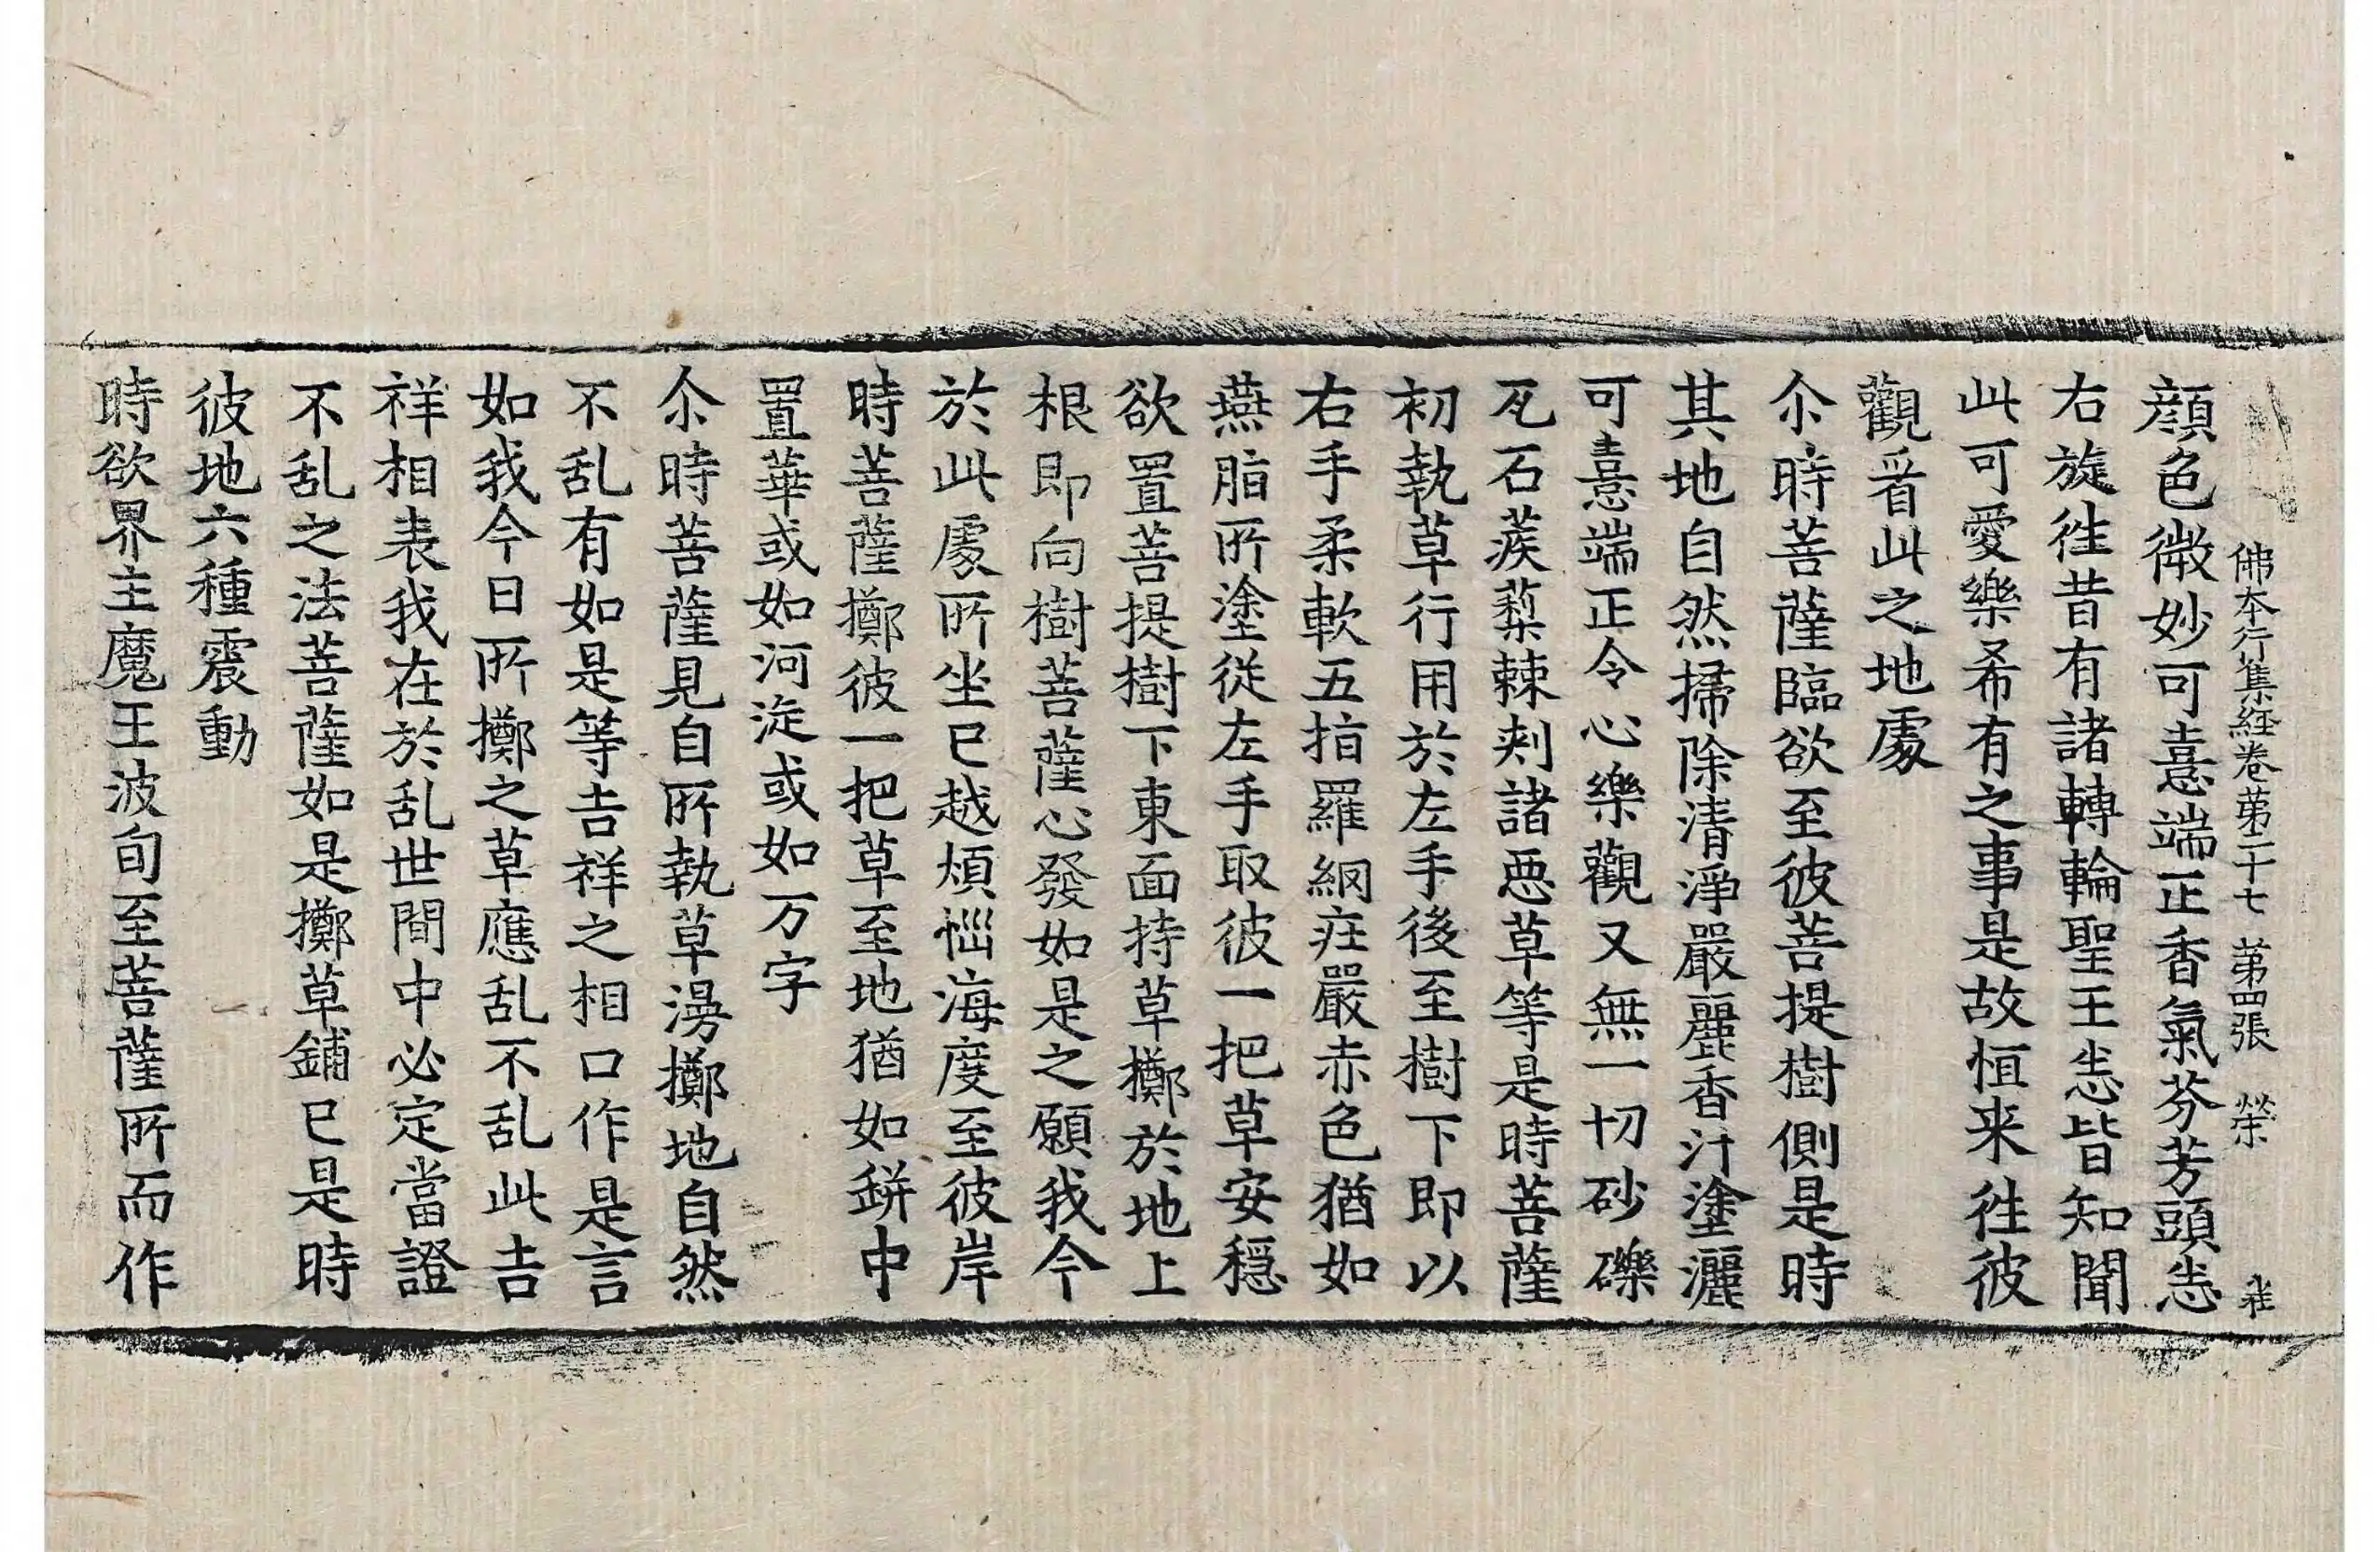 佛本行集経卷苐二十七 苐四張 榮
顔色微妙可憙端正香氣芬芳頭㤀
右旋徃昔有諸轉輪聖王㤀皆知聞
此可愛樂希有之事是故恒来徃彼
觀㸔此之地䖏
尒時菩薩臨欲至彼菩提樹側是時
其地自然掃除清淨嚴麗香汁塗灑
可憙端正令心樂觀又無一切砂礫
瓦石蒺蔾棘刾諸悪草等是時菩薩
初執草行用於左手後至樹下即以
右手柔軟五指羅網庄嚴赤色猶如
燕脂所塗從左手取彼一把草安穏
欲置菩提樹下東面持草擲於地上
根即向樹菩薩心發如是之願我今
於此䖏所坐已越煩惱海度至彼岸
時菩薩擲彼一把草至地猶如缾中
置華或如河漩或如万字
尒時菩薩見自所執草漫擲地自然
不乱有如是等吉祥之相口作是言
如我今日所擲之草應乱不乱此吉
祥相表我在於乱世間中必定當證
不乱之法菩薩如是擲草鋪已是時
彼地六種震動
時欲界主魔王波旬至菩薩所而作